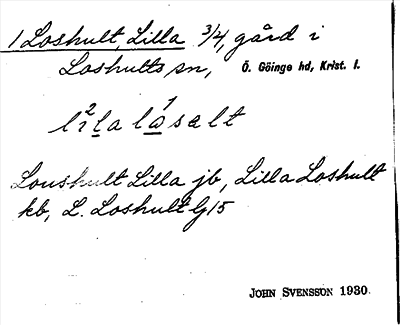 1 Loshult, Lilla 3/4, gård i
Loshults sn, Ö. Göinge hd, Krist. l.
Loushult Lilla jb, Lilla Loshult
kb, L. Loshult G15
JOHN SVENSSON 1930.